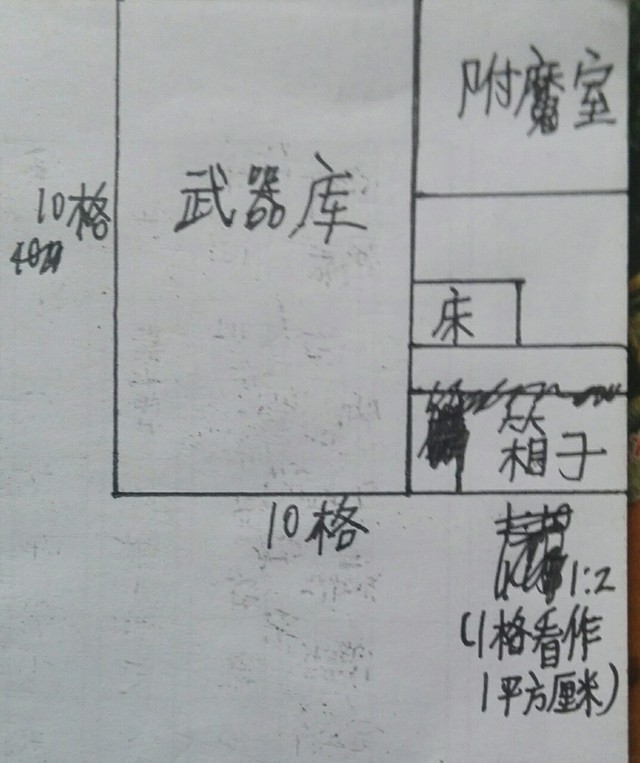 附魔室
武器库
10格
床
箱子
10格
1:2
(1格看作
1平方厘米)